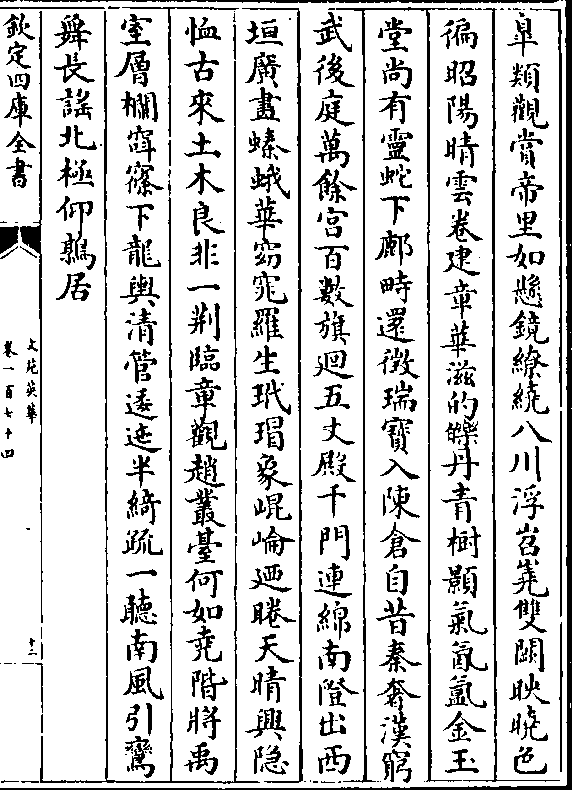 阜類觀賞帝里如懸鏡繚繞八川浮岧嶤雙闕映曉色
徧昭陽晴雲卷建章華滋的皪丹青樹顥氣氤氳金玉
堂尚有靈蛇下鄜畤還徵瑞寶入陳倉自昔秦奢漢窮
武後庭萬餘宮百數旗迴五丈殿千門連綿南隥出西
垣廣畫螓蛾華窈窕羅生玳瑁象崐崘廼睠天晴興隐
恤古來土木良非一荆臨章觀趙叢臺何如堯階將禹
室層欄窅窱下龍輿清管逶迤半綺疏一聽南風引鸞
舞長謡北極仰鶉居
欽定四庫全書
文苑英華
卷一百七十四
十二